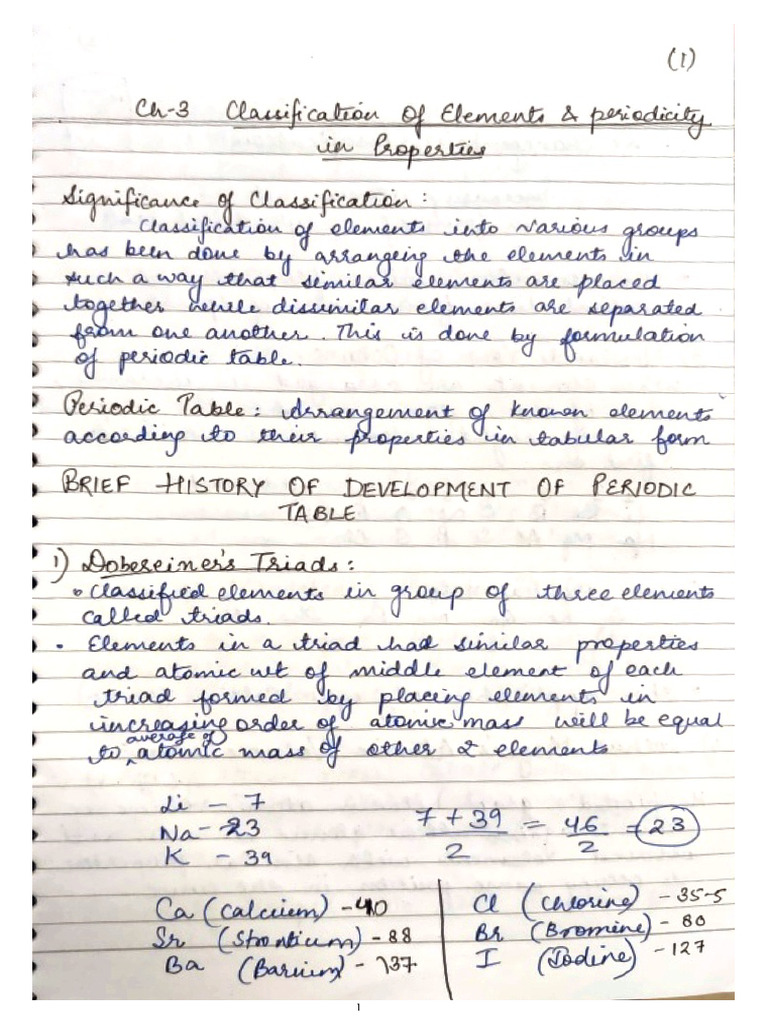 (1)
Ch-3 Classification of Elements & periodicity
in Properties
Significance of Classification :
Classification of elements into various groups
has been done by arrangeing the elements in
such a way that similar elements are placed
together while dissimilar elements are separated
from one another. This is done by formulation
of periodic table.
Periodic Table : Arrangement of known elements
according to their properties in tabular form
BRIEF HISTORY OF DEVELOPMENT OF PERIODIC
TABLE
1) Dobereiner's Triads :
• Classified elements in group of three elements
called triads.
• Elements in a triad had similar properties
and atomic wt of middle element of each
triad formed by placing elements in
increasing order of atomic mass will be equal
to average of atomic mass of other 2 elements
Li - 7
Na - 23
K - 39
7 + 39 / 2 = 46 / 2 = 23
Ca (Calcium) - 40
Sr (Strontium) - 88
Ba (Barium) - 137
Cl (Chlorine) - 35.5
Br (Bromine) - 80
I (Iodine) - 127
1